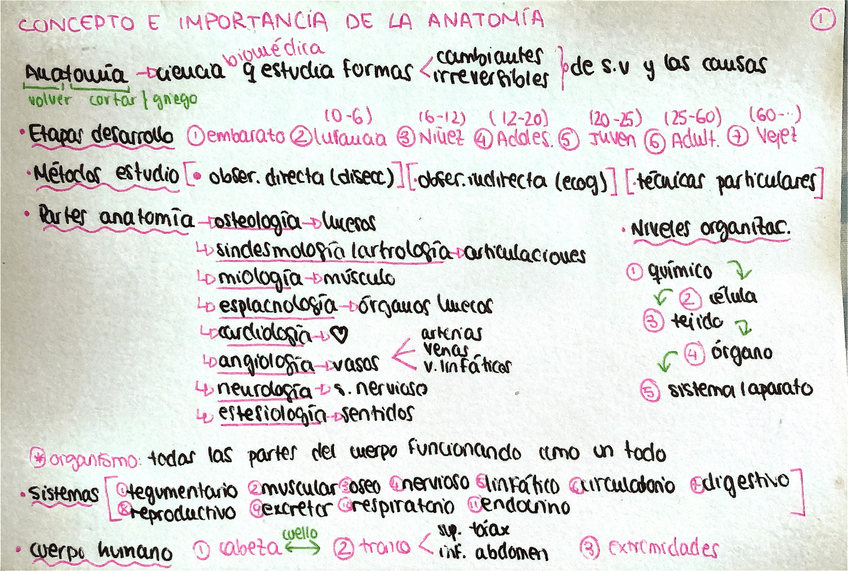 CONCEPTO E IMPORTANCÍA DE LA ANATOMÍA ①
biomédica
Anatomía → ciencia q estudia formas < cambiantes irreversibles } de s.v y las causas
volver cortar / griego
(0-6) (6-12) (12-20) (20-25) (25-60) (60-..)
• Etapas desarrollo ① embarazo ② Infancia ③ Niñez ④ Adoles. ⑤ Juven ⑥ Adult. ⑦ Vejez
• Métodos estudio [• obser. directa (disecc)] [• obser. indirecta (ecog)] [• técnicas particulares]
• Partes anatomía → osteología → huesos
↳ sindesmología / artrología → articulaciones
↳ miología → músculo
↳ esplacnología → órganos huecos
↳ cardiología → ♥
↳ angiología → vasos < arterias venas v. linfáticos
↳ neurología → s. nervioso
↳ estesiología → sentidos
• Niveles organizac.
① químico
② célula
③ tejido
④ órgano
⑤ sistema / aparato
* organismo: todas las partes del cuerpo funcionando como un todo
• Sistemas [① tegumentario ② muscular ③ oseo ④ nervioso ⑤ linfático ⑥ circulatorio ⑦ digestivo
⑧ reproductivo ⑨ excretor ⑩ respiratorio ⑪ endocrino]
• cuerpo humano ① cabeza ↔ cuello ② tronco < sup. tórax inf. abdomen ③ extremidades